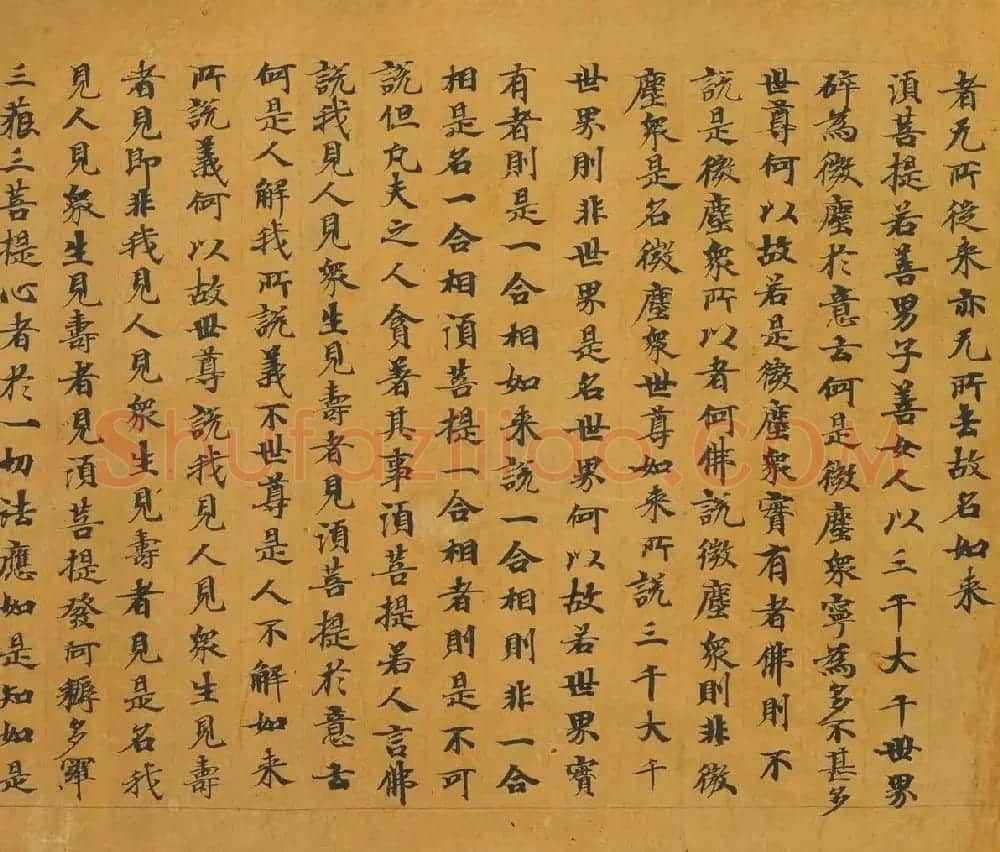 者无所従来亦无所去故名如来
湏菩提若善男子善女人以三千大千世界
碎為微塵於意云何是微塵衆寧為多不甚多
世尊何以故若是微塵衆實有者佛則不
說是微塵衆所以者何佛說微塵衆則非微
塵衆是名微塵衆世尊如来所說三千大千
世界則非世界是名世界何以故若世界實
有者則是一合相如来說一合相則非一合
相是名一合相湏菩提一合相者則是不可
說但凢夫之人貪著其事湏菩提若人言佛
說我見人見衆生見壽者見湏菩提於意云
何是人解我所說義不世尊是人不解如来
所說義何以故世尊說我見人見衆生見壽
者見即非我見人見衆生見壽者見是名我
見人見衆生見壽者見湏菩提發阿耨多羅
三藐三菩提心者於一切法應如是知如是
Shufaziliao.COM